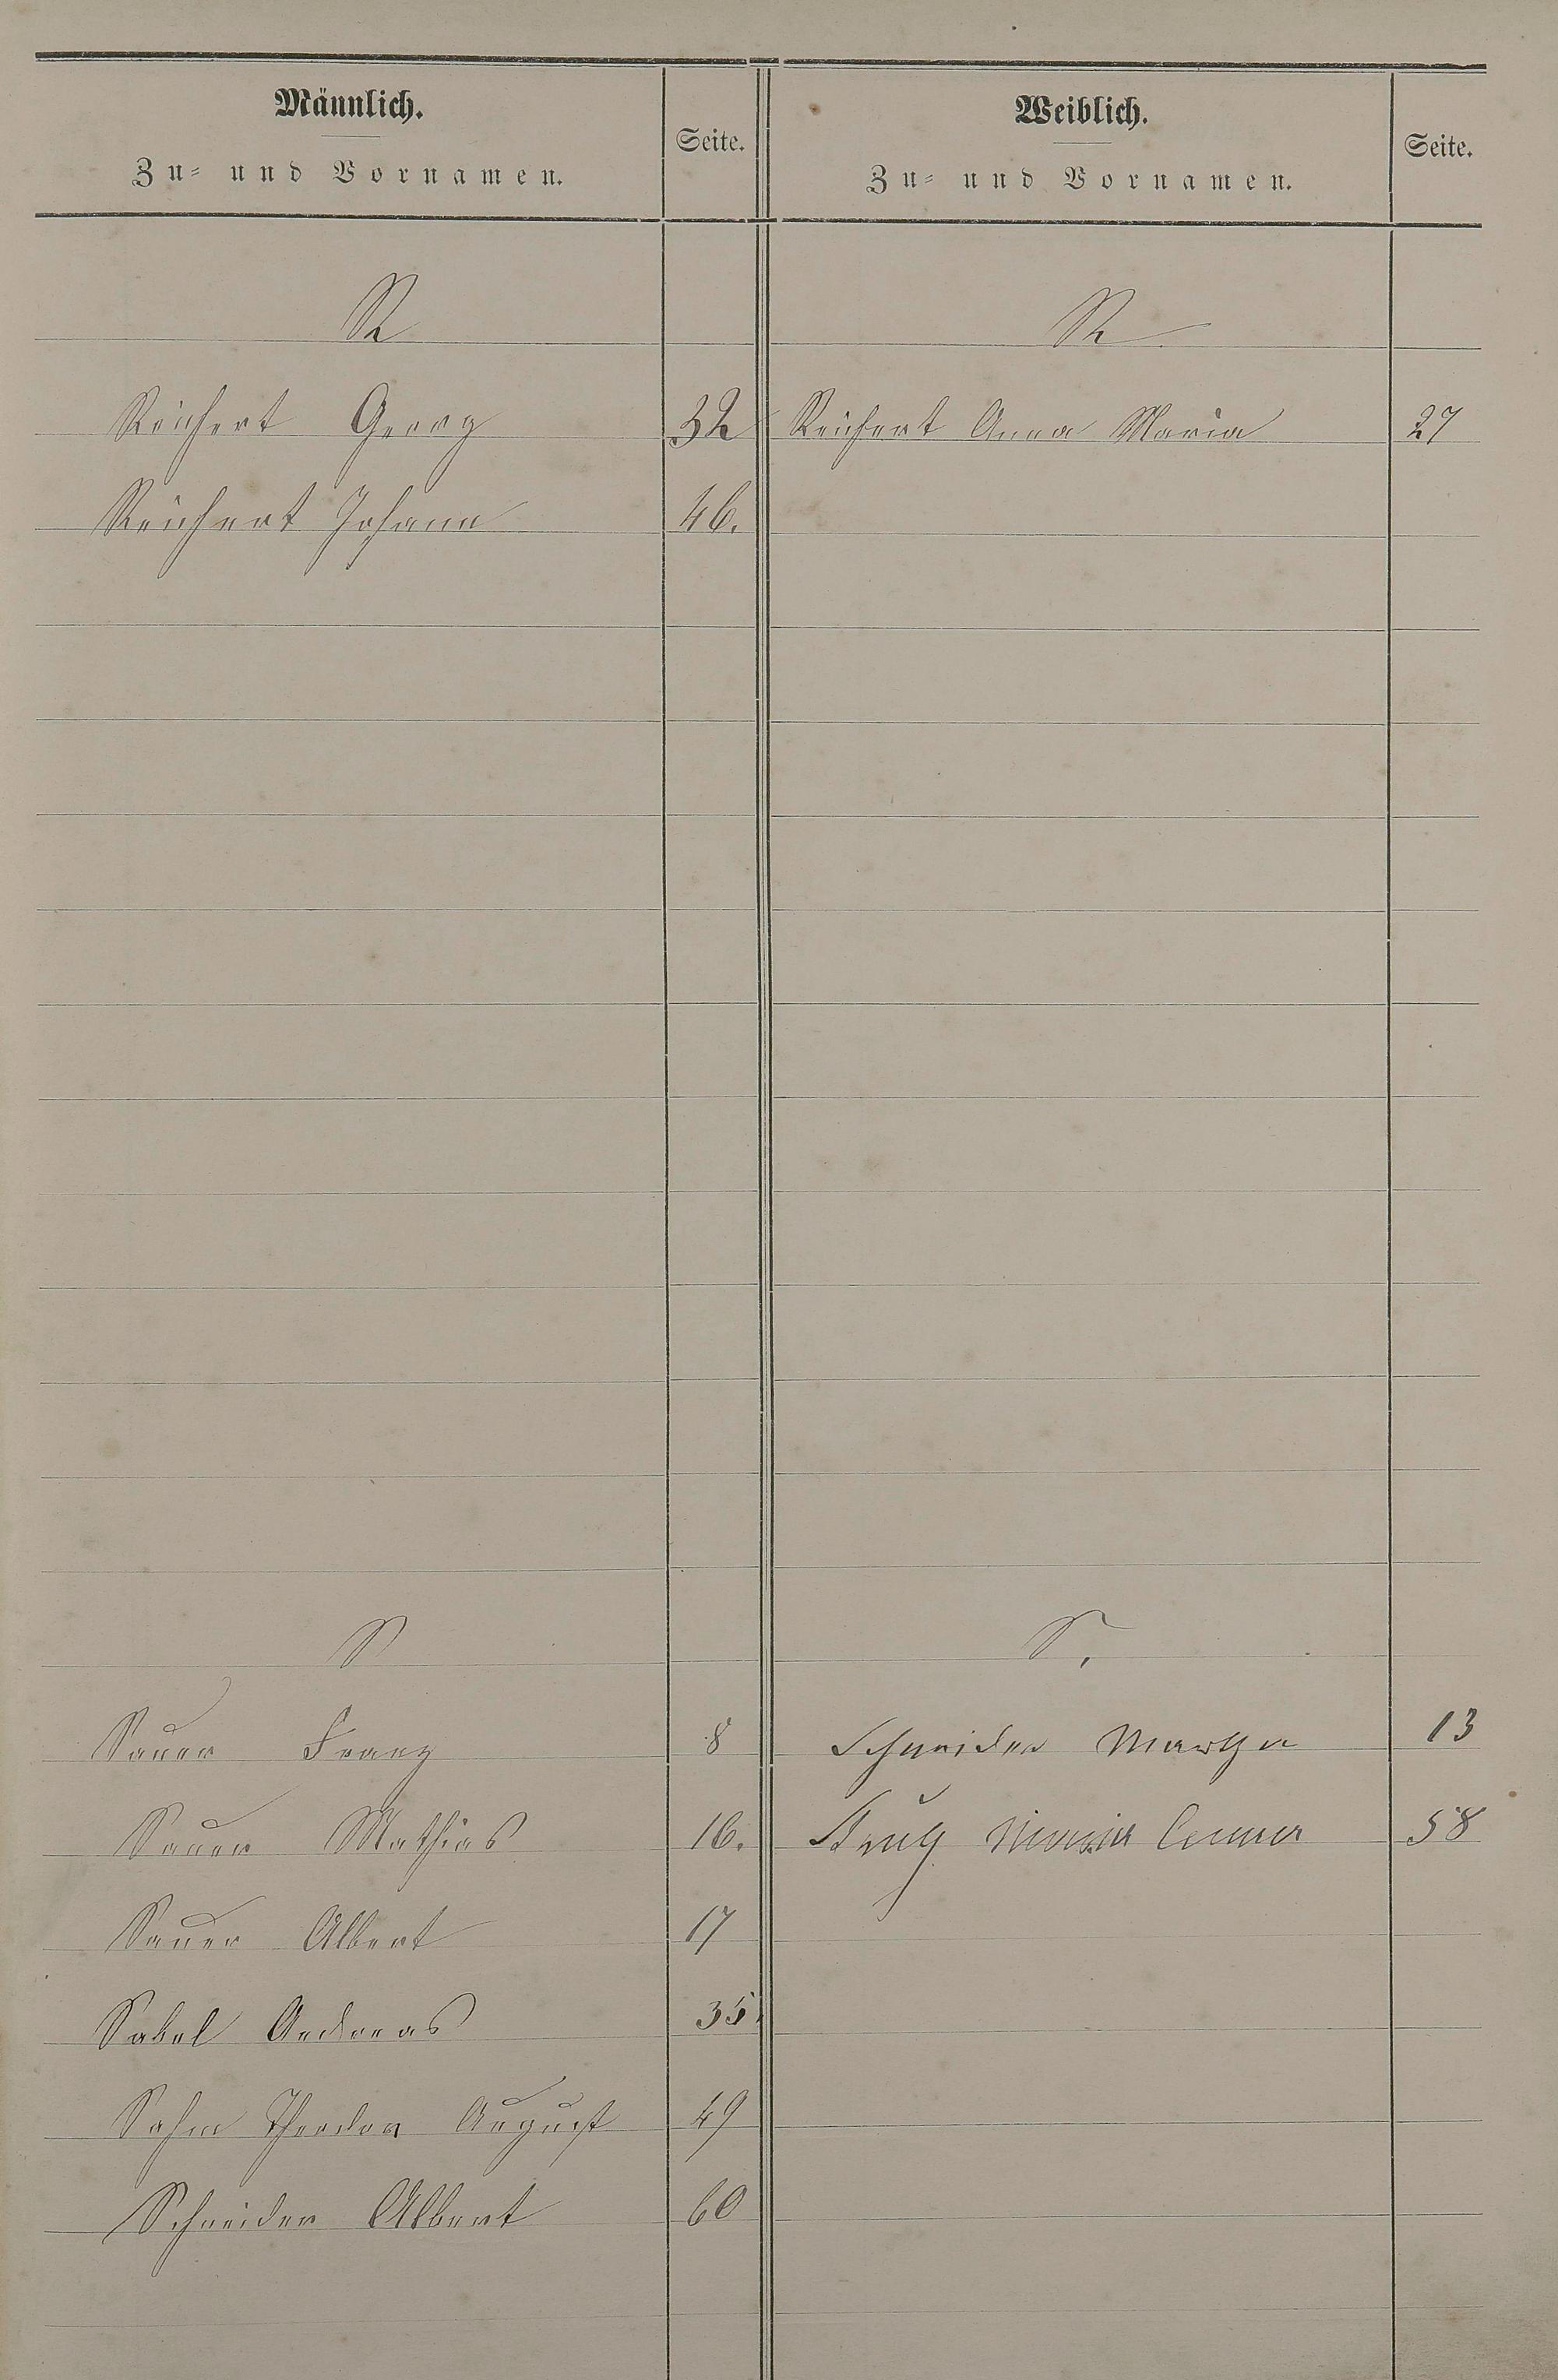 Männlich.
Zu- und Vornamen.
Seite.
Weiblich.
Zu- und Vornamen.
Seite.
R
R
Reichert Georg 32
Reichert Anna Maria 27
Reichert Johann 46.
S
S.
Sauer Franz 8
Schneider Martha 13
Sauer Mathias 16.
Maria Anna 58
Sauer Albert 17
Sabel Andreas 35.
Sahm Theodor August 49
Schneider Albert 60